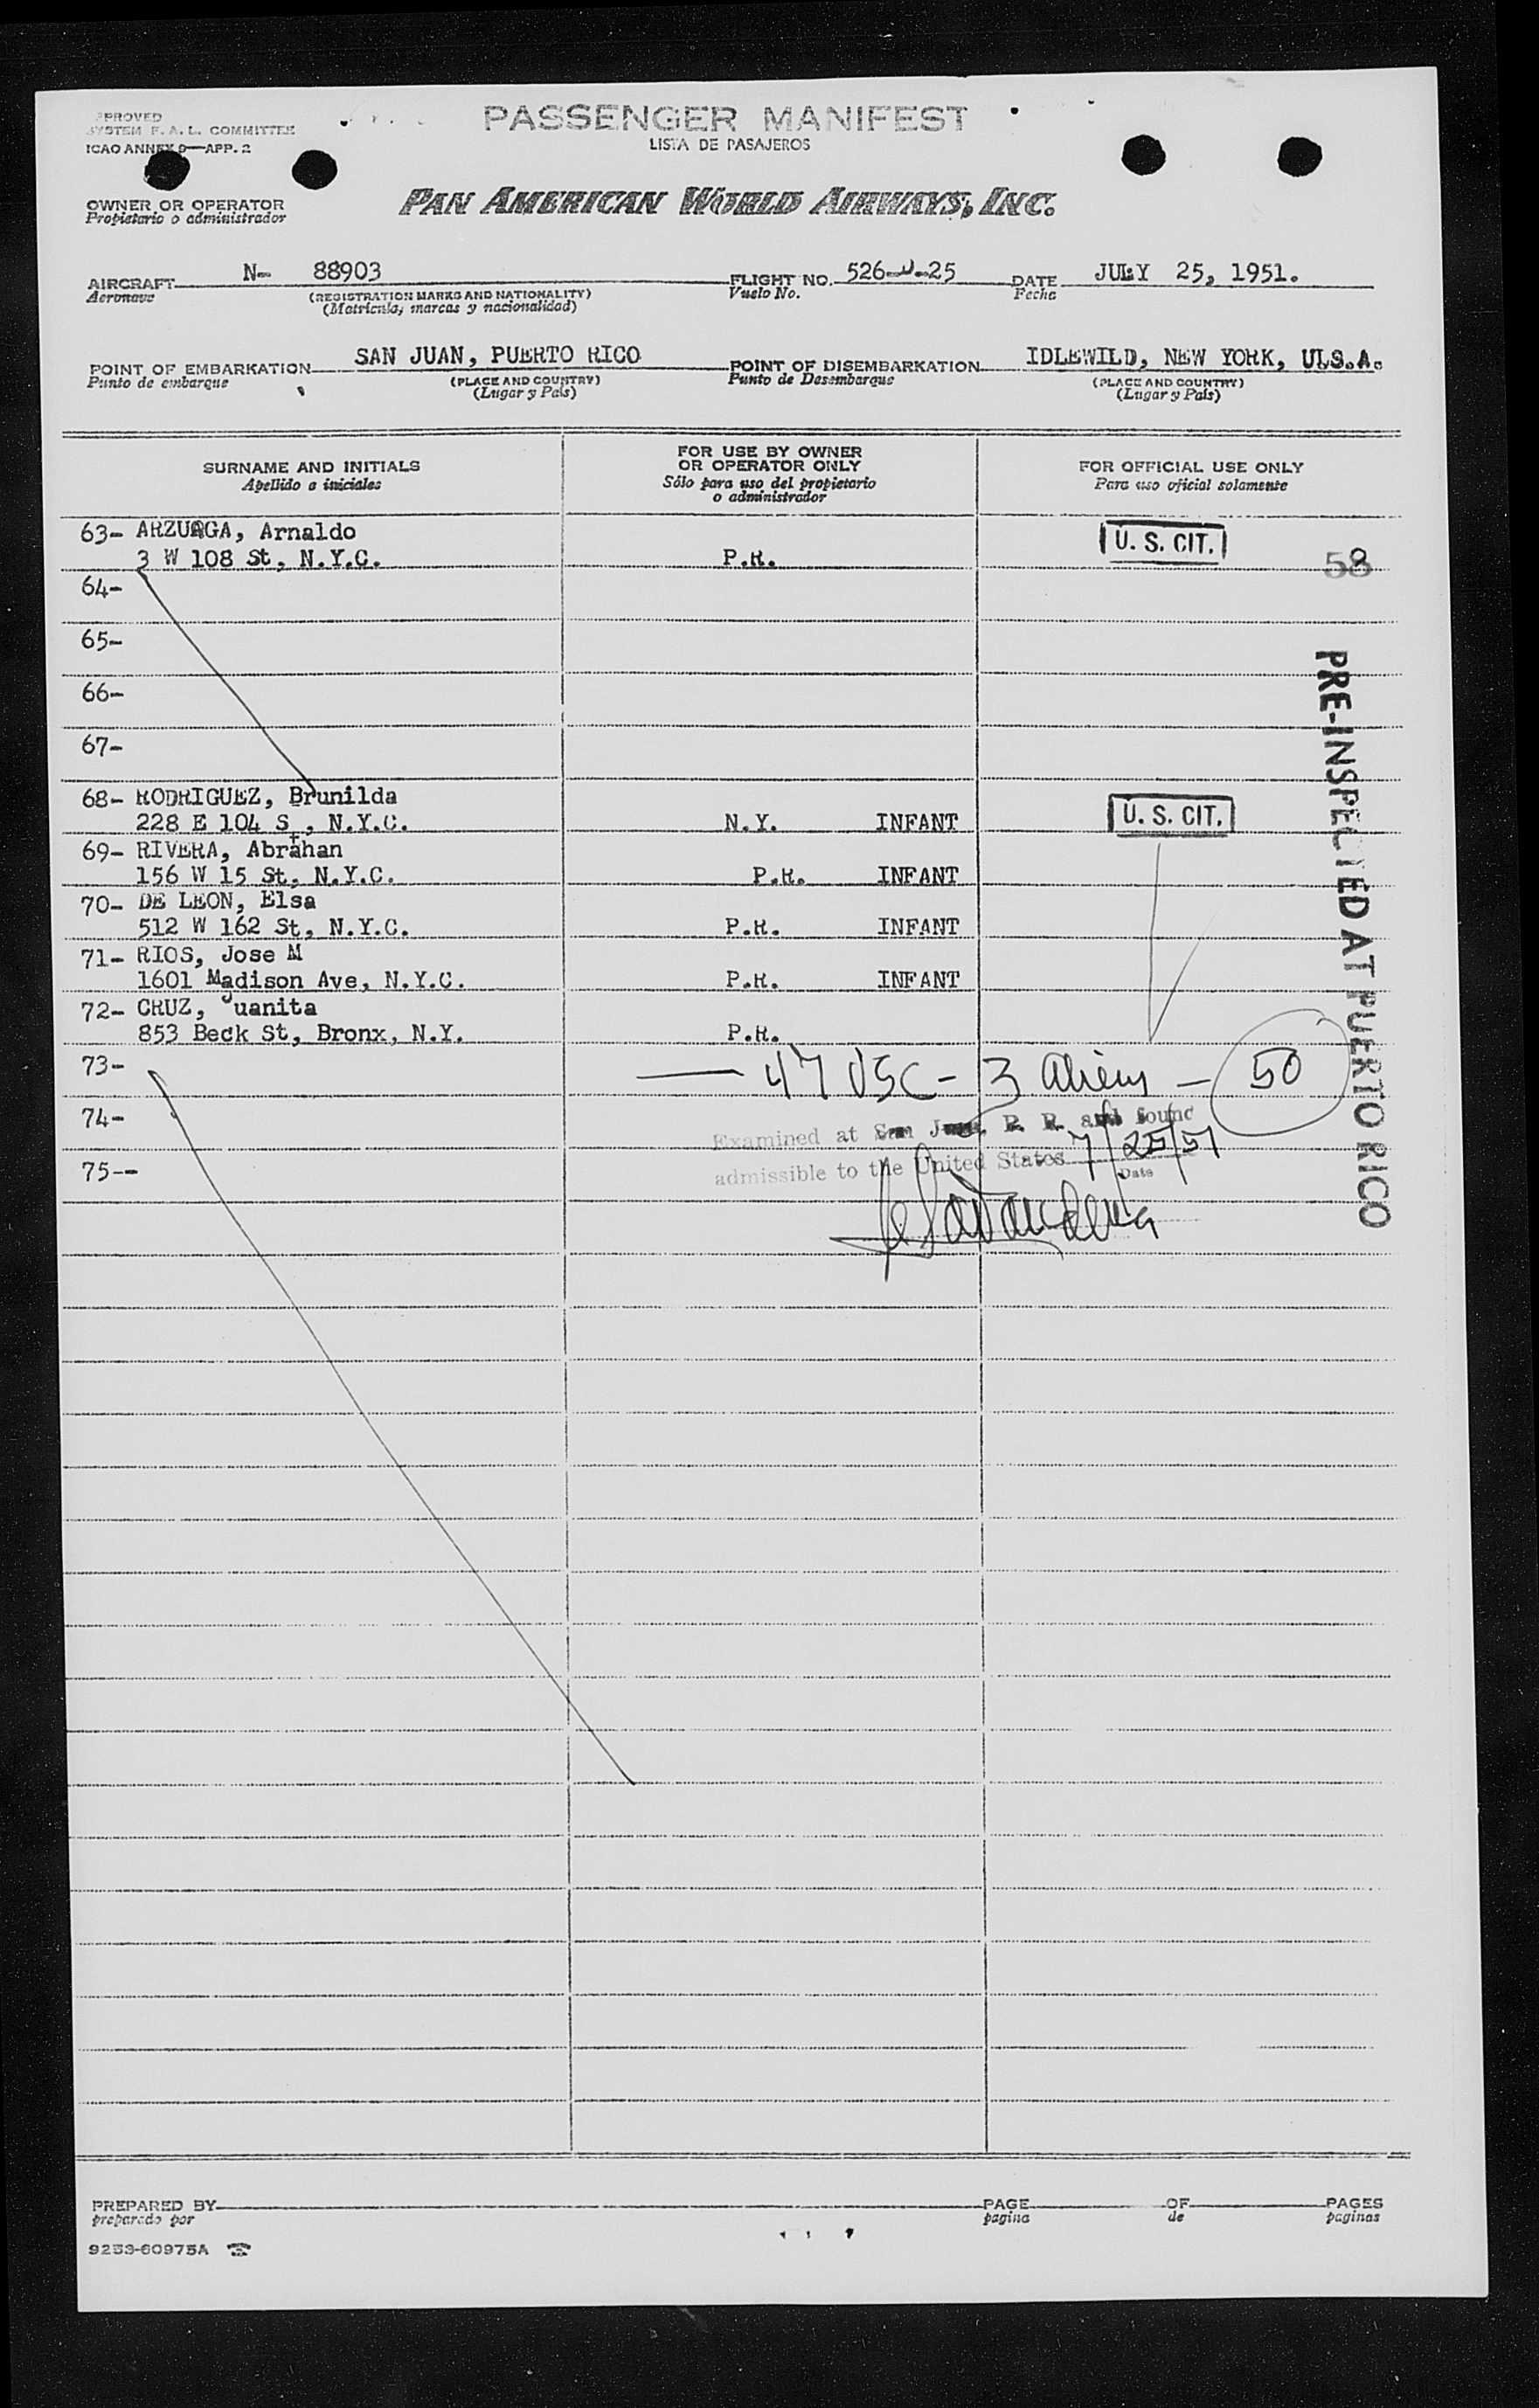 PPROVED
SYSTEM F. A. L. COMMITTEE
ICAO ANNEX 9—APP. 2
PASSENGER MANIFEST
LISTA DE PASAJEROS
OWNER OR OPERATOR
Propietario o administrador
PAN AMERICAN WORLD AIRWAYS, INC.
AIRCRAFT N- 88903 FLIGHT NO. 526-J-25 DATE JULY 25, 1951.
Aeronave (REGISTRATION MARKS AND NATIONALITY) Vuelo No. Fecha
(Matrícula, marcas y nacionalidad)
POINT OF EMBARKATION SAN JUAN, PUERTO RICO POINT OF DISEMBARKATION IDLEWILD, NEW YORK, ULS.A.
Punto de embarque (PLACE AND COUNTRY) Punto de Desembarque (PLACE AND COUNTRY)
(Lugar y País) (Lugar y País)
SURNAME AND INITIALS
Apellido a iniciales
FOR USE BY OWNER
OR OPERATOR ONLY
Sólo para uso del propietario
o administrador
FOR OFFICIAL USE ONLY
Para uso oficial solamente
63- ARZUAGA, Arnaldo U. S. CIT.
3 W 108 St, N.Y.C. P.R. 58
64-
65-
66-
67-
68- RODRIGUEZ, Brunilda
228 E 104 St, N.Y.C. N.Y. INFANT U. S. CIT.
69- RIVERA, Abrahan
156 W 15 St, N.Y.C. P.R. INFANT
70- DE LEON, Elsa
512 W 162 St, N.Y.C. P.R. INFANT
71- RIOS, Jose M
1601 Madison Ave, N.Y.C. P.R. INFANT
72- CRUZ, Juanita
853 Beck St, Bronx, N.Y. P.R.
73- — 47 USC - 3 Aliens — 50
74-
Examined at San Juan P. R. and found
75--
admissible to the United States 7/25/51
Date
PRE-INSPECTED AT PUERTO RICO
PREPARED BY PAGE OF PAGES
preparado por pagina de paginas
9253-60975A